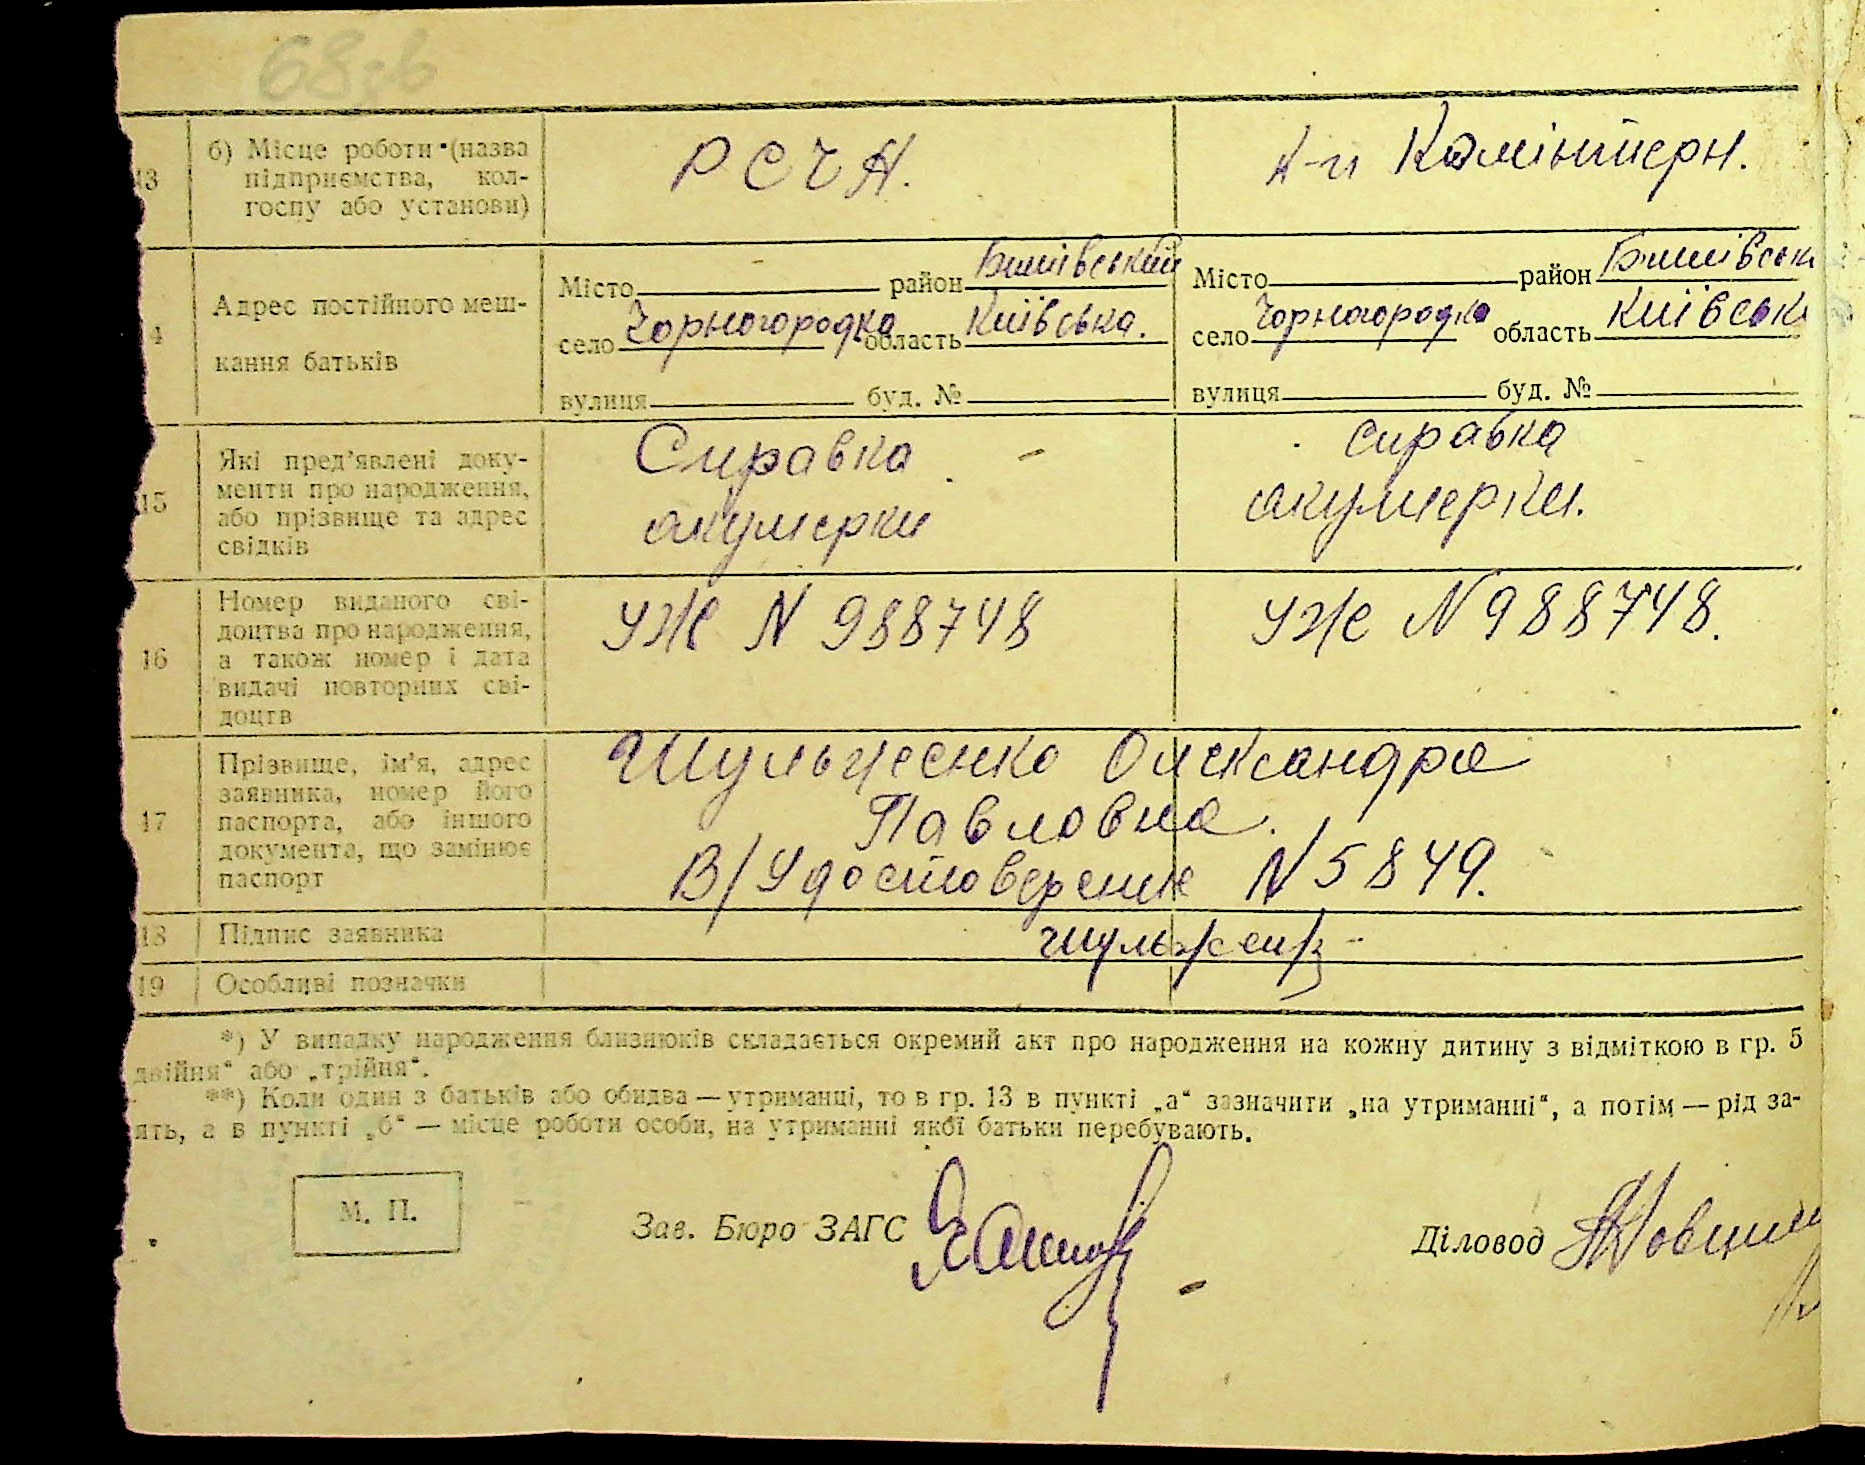 68зв
13 б) Місце роботи (назва
підприємства, кол-
госпу або установи)
РСЧА.
к-п Комінтерн.
4 Адрес постійного меш-
кання батьків
Місто район Бишівський
село Чорногородка область Київська.
вулиця буд. №
Місто район Бишівськ
село Чорногородка область Київськ
вулиця буд. №
15 Які пред'явлені доку-
менти про народження,
або прізвище та адрес
свідків
Справка
акушерки
справка
акушерки.
16 Номер виданого сві-
доцтва про народження,
а також номер і дата
видачі повторних сві-
доцтв
УЖ N 988748
УЖ N 988748.
17 Прізвище, ім'я, адрес
заявника, номер його
паспорта, або іншого
документа, що замінює
паспорт
Шульженко Олександра
Павловна.
В/Удостоверение N 5849.
18 Підпис заявника
19 Особливі позначки
*) У випадку народження близнюків складається окремий акт про народження на кожну дитину з відміткою в гр. 5
двійня“ або „трійня“.
**) Коли один з батьків або обидва — утриманці, то в гр. 13 в пункті „а“ зазначити „на утриманні“, а потім — рід за-
ять, а в пункті „б“ — місце роботи особи, на утриманні якої батьки перебувають.
М. П.
Зав. Бюро ЗАГС
Діловод